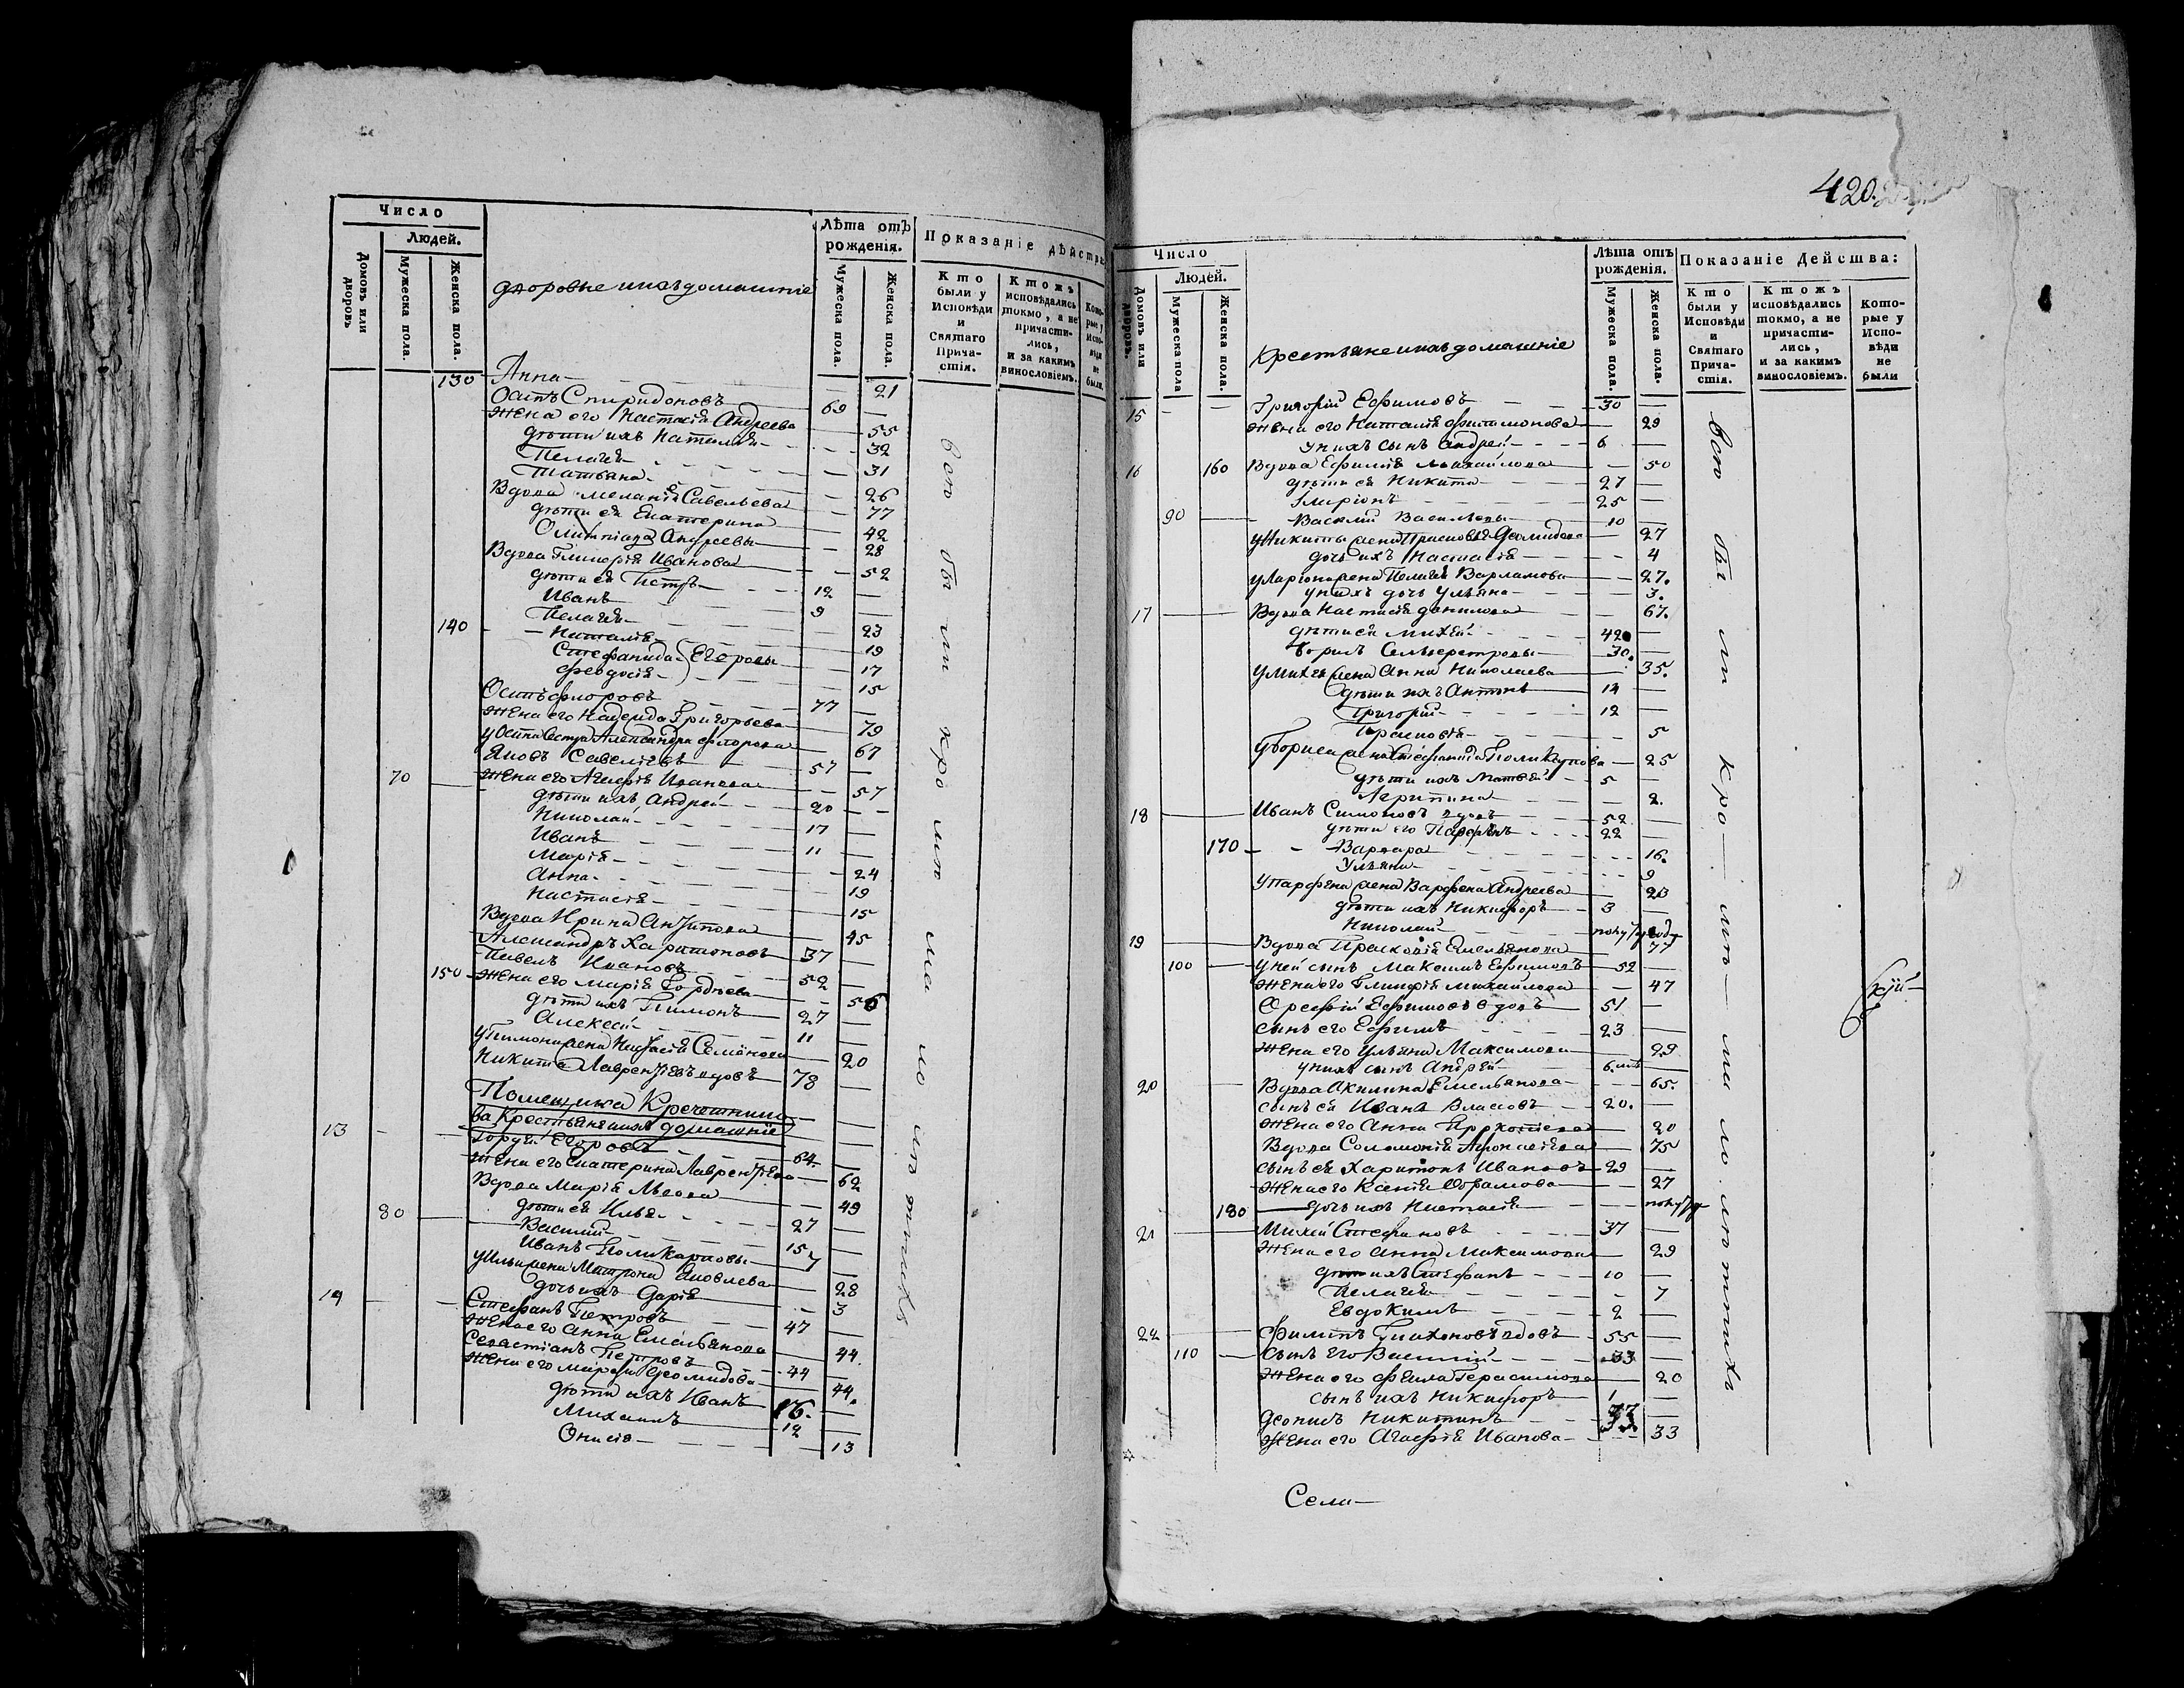 Число
Людей.
Домовъ или дворовъ
Мужеска пола.
Женска пола.
дворовые и ихъ домашніе
Лѣта отъ рожденія.
Мужеска пола.
Женска пола.
Показаніе дѣйства
Кто были у Исповѣди и Святаго Причастія.
Ктожъ исповѣдались токмо, а не причастились, и за какимъ винословіемъ.
Которые у Исповѣди не были.
130 Анна 21
Осипъ Спиридоновъ 69
Жена его Настасія Андреева 55
дѣти ихъ Наталія 32
Пелагія 31
Татьяна 26
Вдова Меланія Савельева 77
дѣти ея Екатерина 42
Олимпіада Андреевы 28
Вдова Гликерія Иванова 52
дѣти ея Петръ 12
Иванъ 9
Пелагія 23
140 Наталія 19
Стефанида Егоровы 17
Феодосія 15
Осипъ Флоровъ 77
Жена его Надежда Григорьева 79
у Осипа сестра Александра Флорова 67
Яковъ Савеліевъ 57
70 Жена его Агафія Иванова 57
дѣти ихъ Андрей 20
Николай 17
Иванъ 11
Марія 24
Анна 19
Настасія 15
Вдова Ирина Антипова 45
Александръ Харитоновъ 37
Павелъ Ивановъ 52
150 Жена его Марія Гордѣева 56
дѣти ихъ Пимонъ 27
Алексѣй 11
у Пимона жена Настасія Семёнова 20
Никита Лаврентіевъ вдовъ 78
Помещика Кречетникова Крестьяне и ихъ домашніе
13 Гордѣй Егоровъ 64
Жена его Екатерина Лаврентіева 62
Вдова Марія Львова 49
дѣти ея Илья 27
80 Василий 15
Иванъ Поликарповы 7
у Ильи жена Матрона Яковлева 28
дочь ихъ Дарія 3
14 Стефанъ Петровъ 47
Жена его Анна Емельянова 44
Севастіанъ Петровъ 44
Жена его Марфа Диомидова 44
дѣти ихъ Иванъ 16
Михаилъ 12
Онисія 13
420
Число
Людей.
Домовъ или дворовъ.
Мужеска пола
Женска пола.
Крестьяне и ихъ домашніе
Лѣта отъ рожденія.
Мужеска пола.
Женска пола.
Показаніе Дейсшва:
Кто были у Исповѣди и Святаго Причастія.
Ктожъ исповѣдались токмо, а не причастились, и за какимъ винословіемъ.
Которые у Исповѣди не были
15 Григорій Ефимовъ 30
Жена его Наталія Филимонова 29
у нихъ сынъ Андрей 6
16 160 Вдова Ефимія Михайлова 50
дѣти ея Никита 27
Иларіонъ 25
90 Василий Васильевы 10
у Никиты жена Прасковья Диомидова 27
дочь ихъ Настасія 4
у Ларіона жена Пелагія Варламова 27
у нихъ дочь Ульяна 3
17 Вдова Настасія Данилова 67
дѣти ея Михей 42
Борисъ Селиверстровы 30
у Михея жена Анна Николаева 35
дѣти ихъ Антонъ 14
Григорій 12
Прасковія 5
у Бориса жена Стефанида Поликарпова 25
дѣти ихъ Матвей 5
Агрипина 2
18 Иванъ Симоновъ вдовъ 52
дѣти его Парфенъ 22
170 Варвара 16
Ульяна 9
у Парфена жена Варфена Андреева 23
дѣти ихъ Никифоръ 3
Николай полугоду
19 Вдова Прасковія Емельянова 77
100 у ней сынъ Максимъ Ефимовъ 52
Жена его Гликерія Михайлова 47
Орефій Ефимовъ вдовъ 51
сынъ его Ефимъ 23
Жена его Ульяна Максимова 29
у нихъ сынъ Андрей
20 Вдова Акилина Емельянова 65
сынъ ея Иванъ Власовъ 20
Жена его Анна Прокопіева 20
Вдова Соломонія Афонасіева 75
сынъ ея Харитонъ Ивановъ 29
Жена его Ксенія Абрамова 27
180 дочь ихъ Настасія
21 Михей Стефановъ 37
Жена его Анна Максимова 29
дѣти ихъ Стефанъ 10
Пелагія 7
Евдокимъ 2
22 Филипъ Тихоновъ вдовъ 55
110 Сынъ его Василій 33
Жена его Фекла Герасимова 20
сынъ ихъ Никифоръ 1
Деонисъ Никитинъ 33
Жена его Агафія Иванова 33
Села